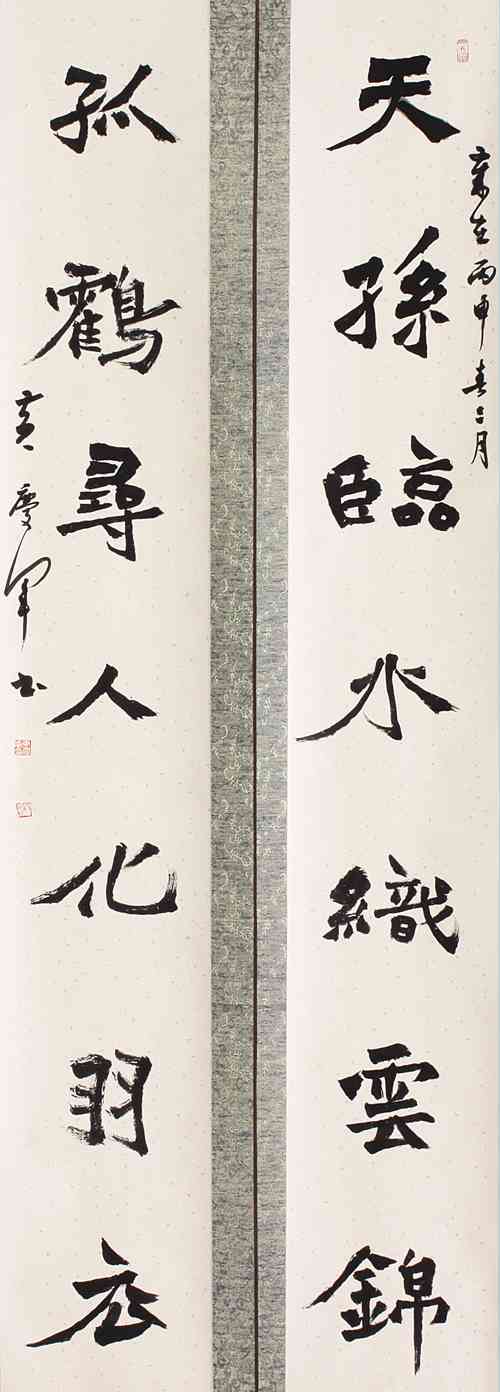 天孫臨水織雲錦
歲在丙申春二月
孤鶴尋人化羽衣
黃慶軍書